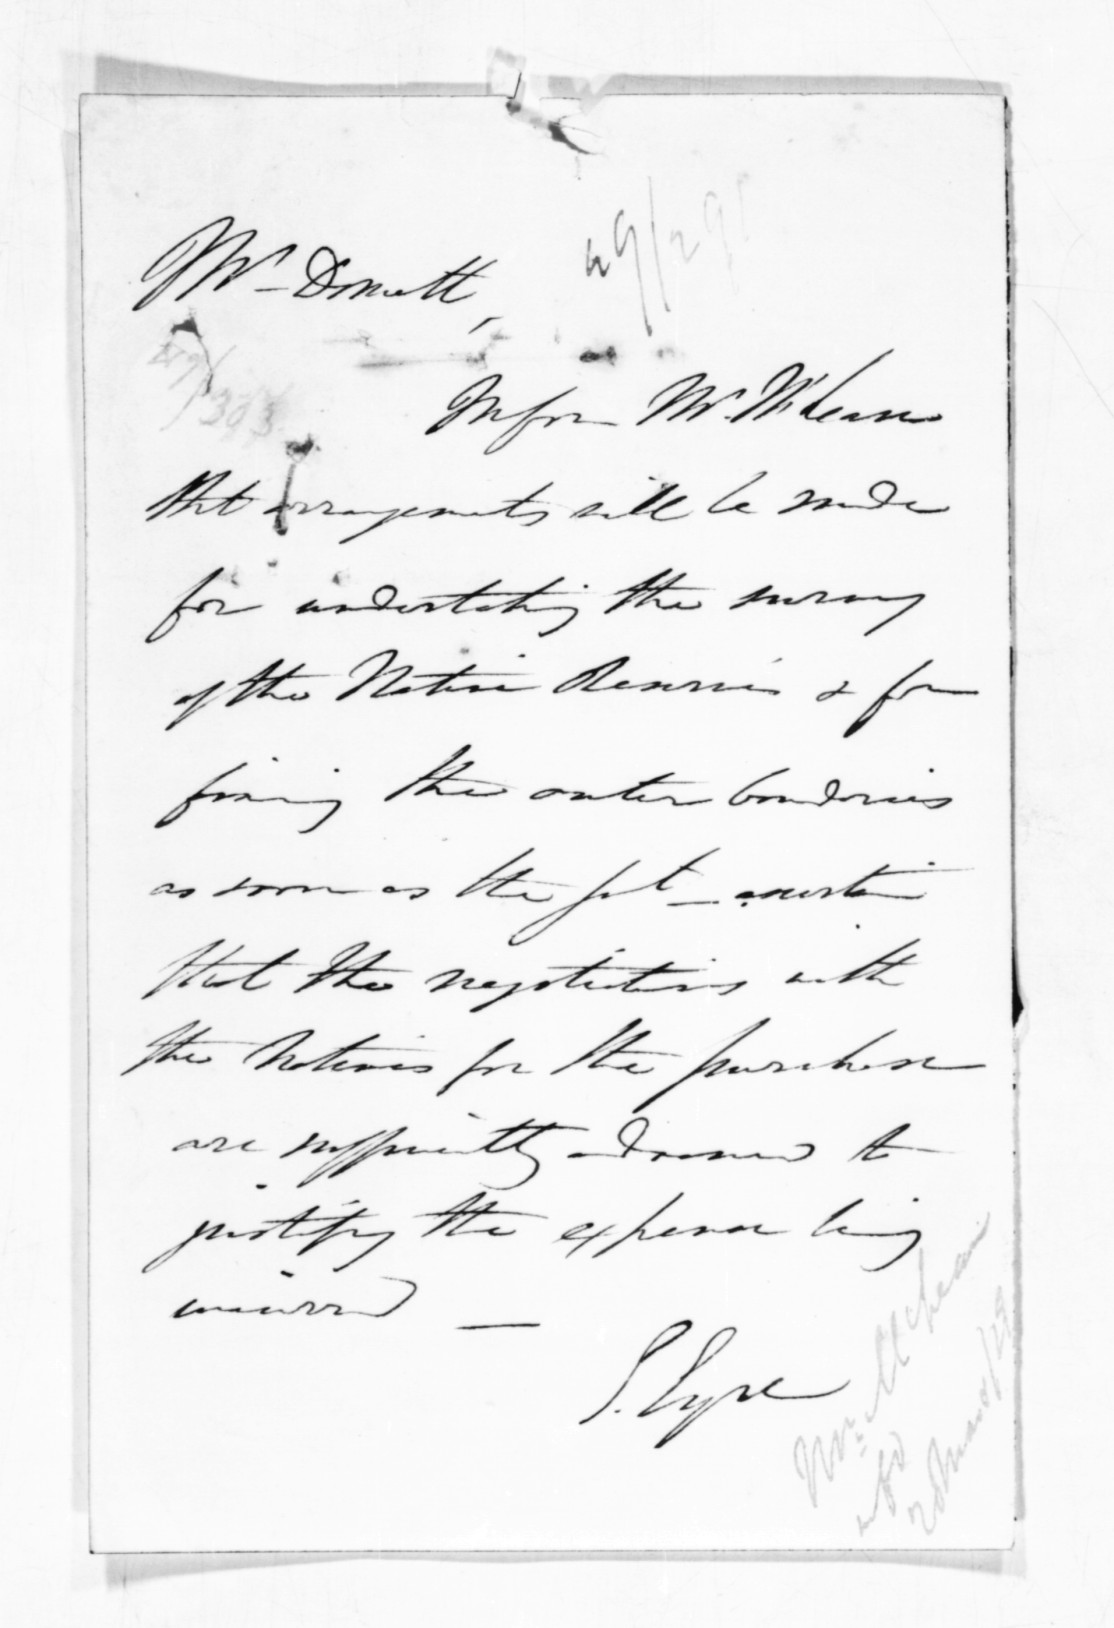 Mr Domett,
49/29
49/303
Inform Mr. McLean
that arrangements will be made
for undertaking the survey
of the Native Reserves & for
fixing the outer boundaries
as soon as the Govt ascertain
that the negotiations with
the Natives for the purchase
are sufficiently advanced to
justify the expense being
incurred —
E. Eyre
Mr. McLean
infd
28 March/49